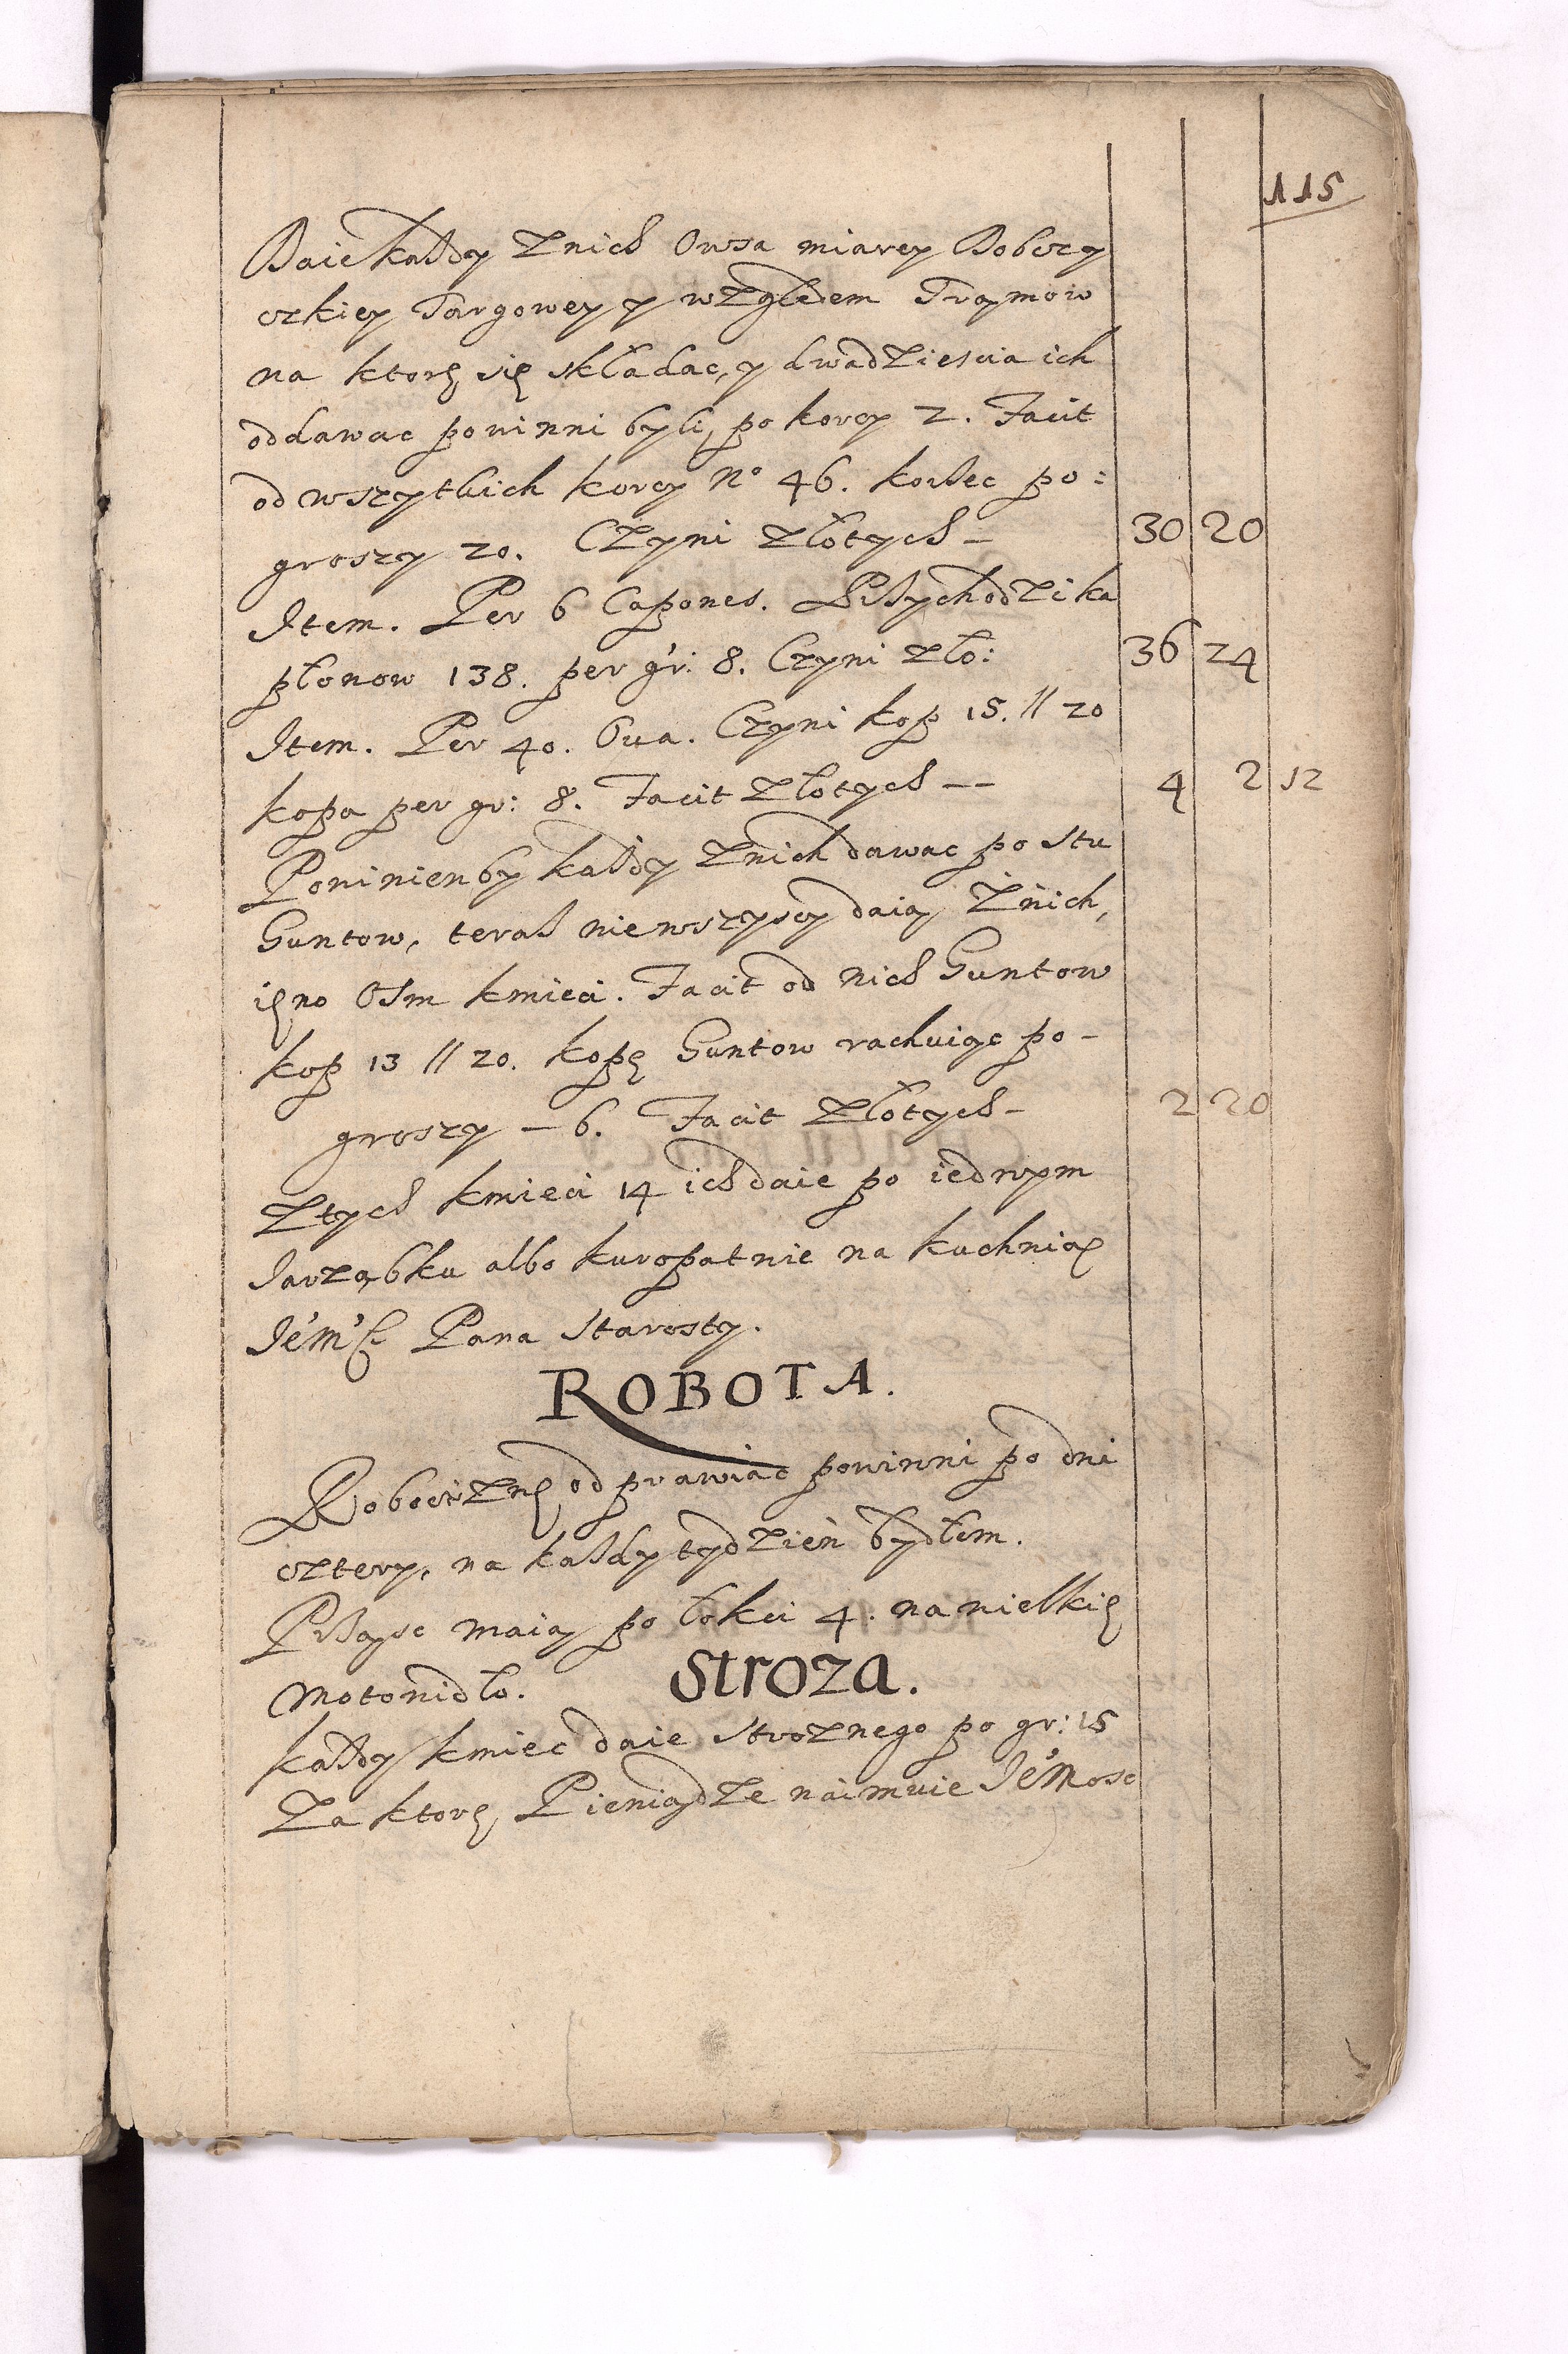 115
Daie każdy z nich Owsa miarey Bobeczy
czkiey Targowey y względem Tramow
na ktorę się składac, y dwadziescia ich
oddawac powinni byli, po korcy 2. Facit
od wszytkich korcy No 46. korzec po:
groszy 20. Czyni złotych – 30 20
Item. Per 6 Capones. Przychodzi ka
płonow 138. per gr: 8. Czyni zło: 36 24
Item. Per 40. Oua. Czyni kop 15. // 20
kopa per gr: 8. Facit złotych -- 4 2 12
Powinien by każdy z nich dawac po stu
Guntow, teraz nie wszyscy daią z nich,
ięno Osm kmieci. Facit od nich Guntow
kop 13 // 20. kopę Guntow rachuiąc po -
groszy – 6. Facit złotych - 2 20
Z tych kmieci 14 ich daie po iednym
Jarząbku albo kuropatnie na kuchnią
Jem'ści Pana Starosty.
ROBOTA.
Robociznę odprawiac powinni po dni
cztery, na każdy tydzień bydłem.
Prząsc maią po łokci 4. na wielkię
Motowidło.
Stroza.
każdy kmiec daie stroznego po gr: 15
Za ktorę Pieniądze naimuie Je'Mosc